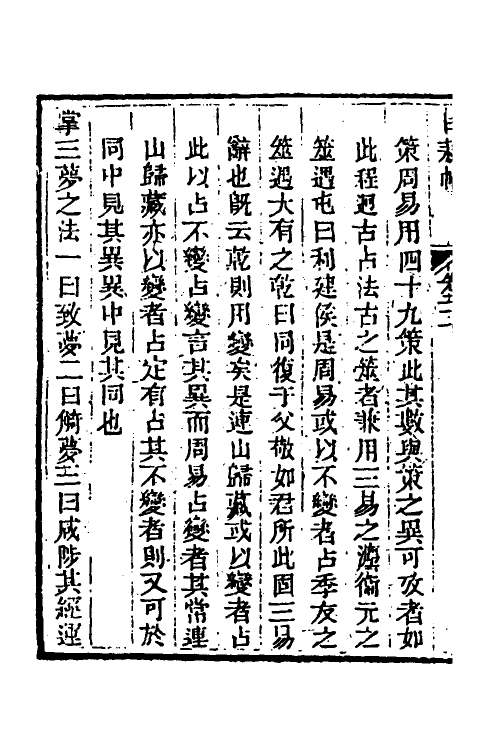 策周易用四十九策此其數與策之異可攷者如
此程迥古占法古之筮者兼用三易之灋衞元之
筮遇屯曰利建侯是周易或以不變者占季友之
筮遇大有之乾曰同復于父敬如君所此固三易
辭也旣云乾則用變矣是連山歸藏或以變者占
此以占不變占變言其異而周易占變者其常連
山歸藏亦以變者占定有占其不變者則又可於
同中見其異異中見其同也
掌三夢之法一曰致夢二曰觭夢三曰咸陟其經運